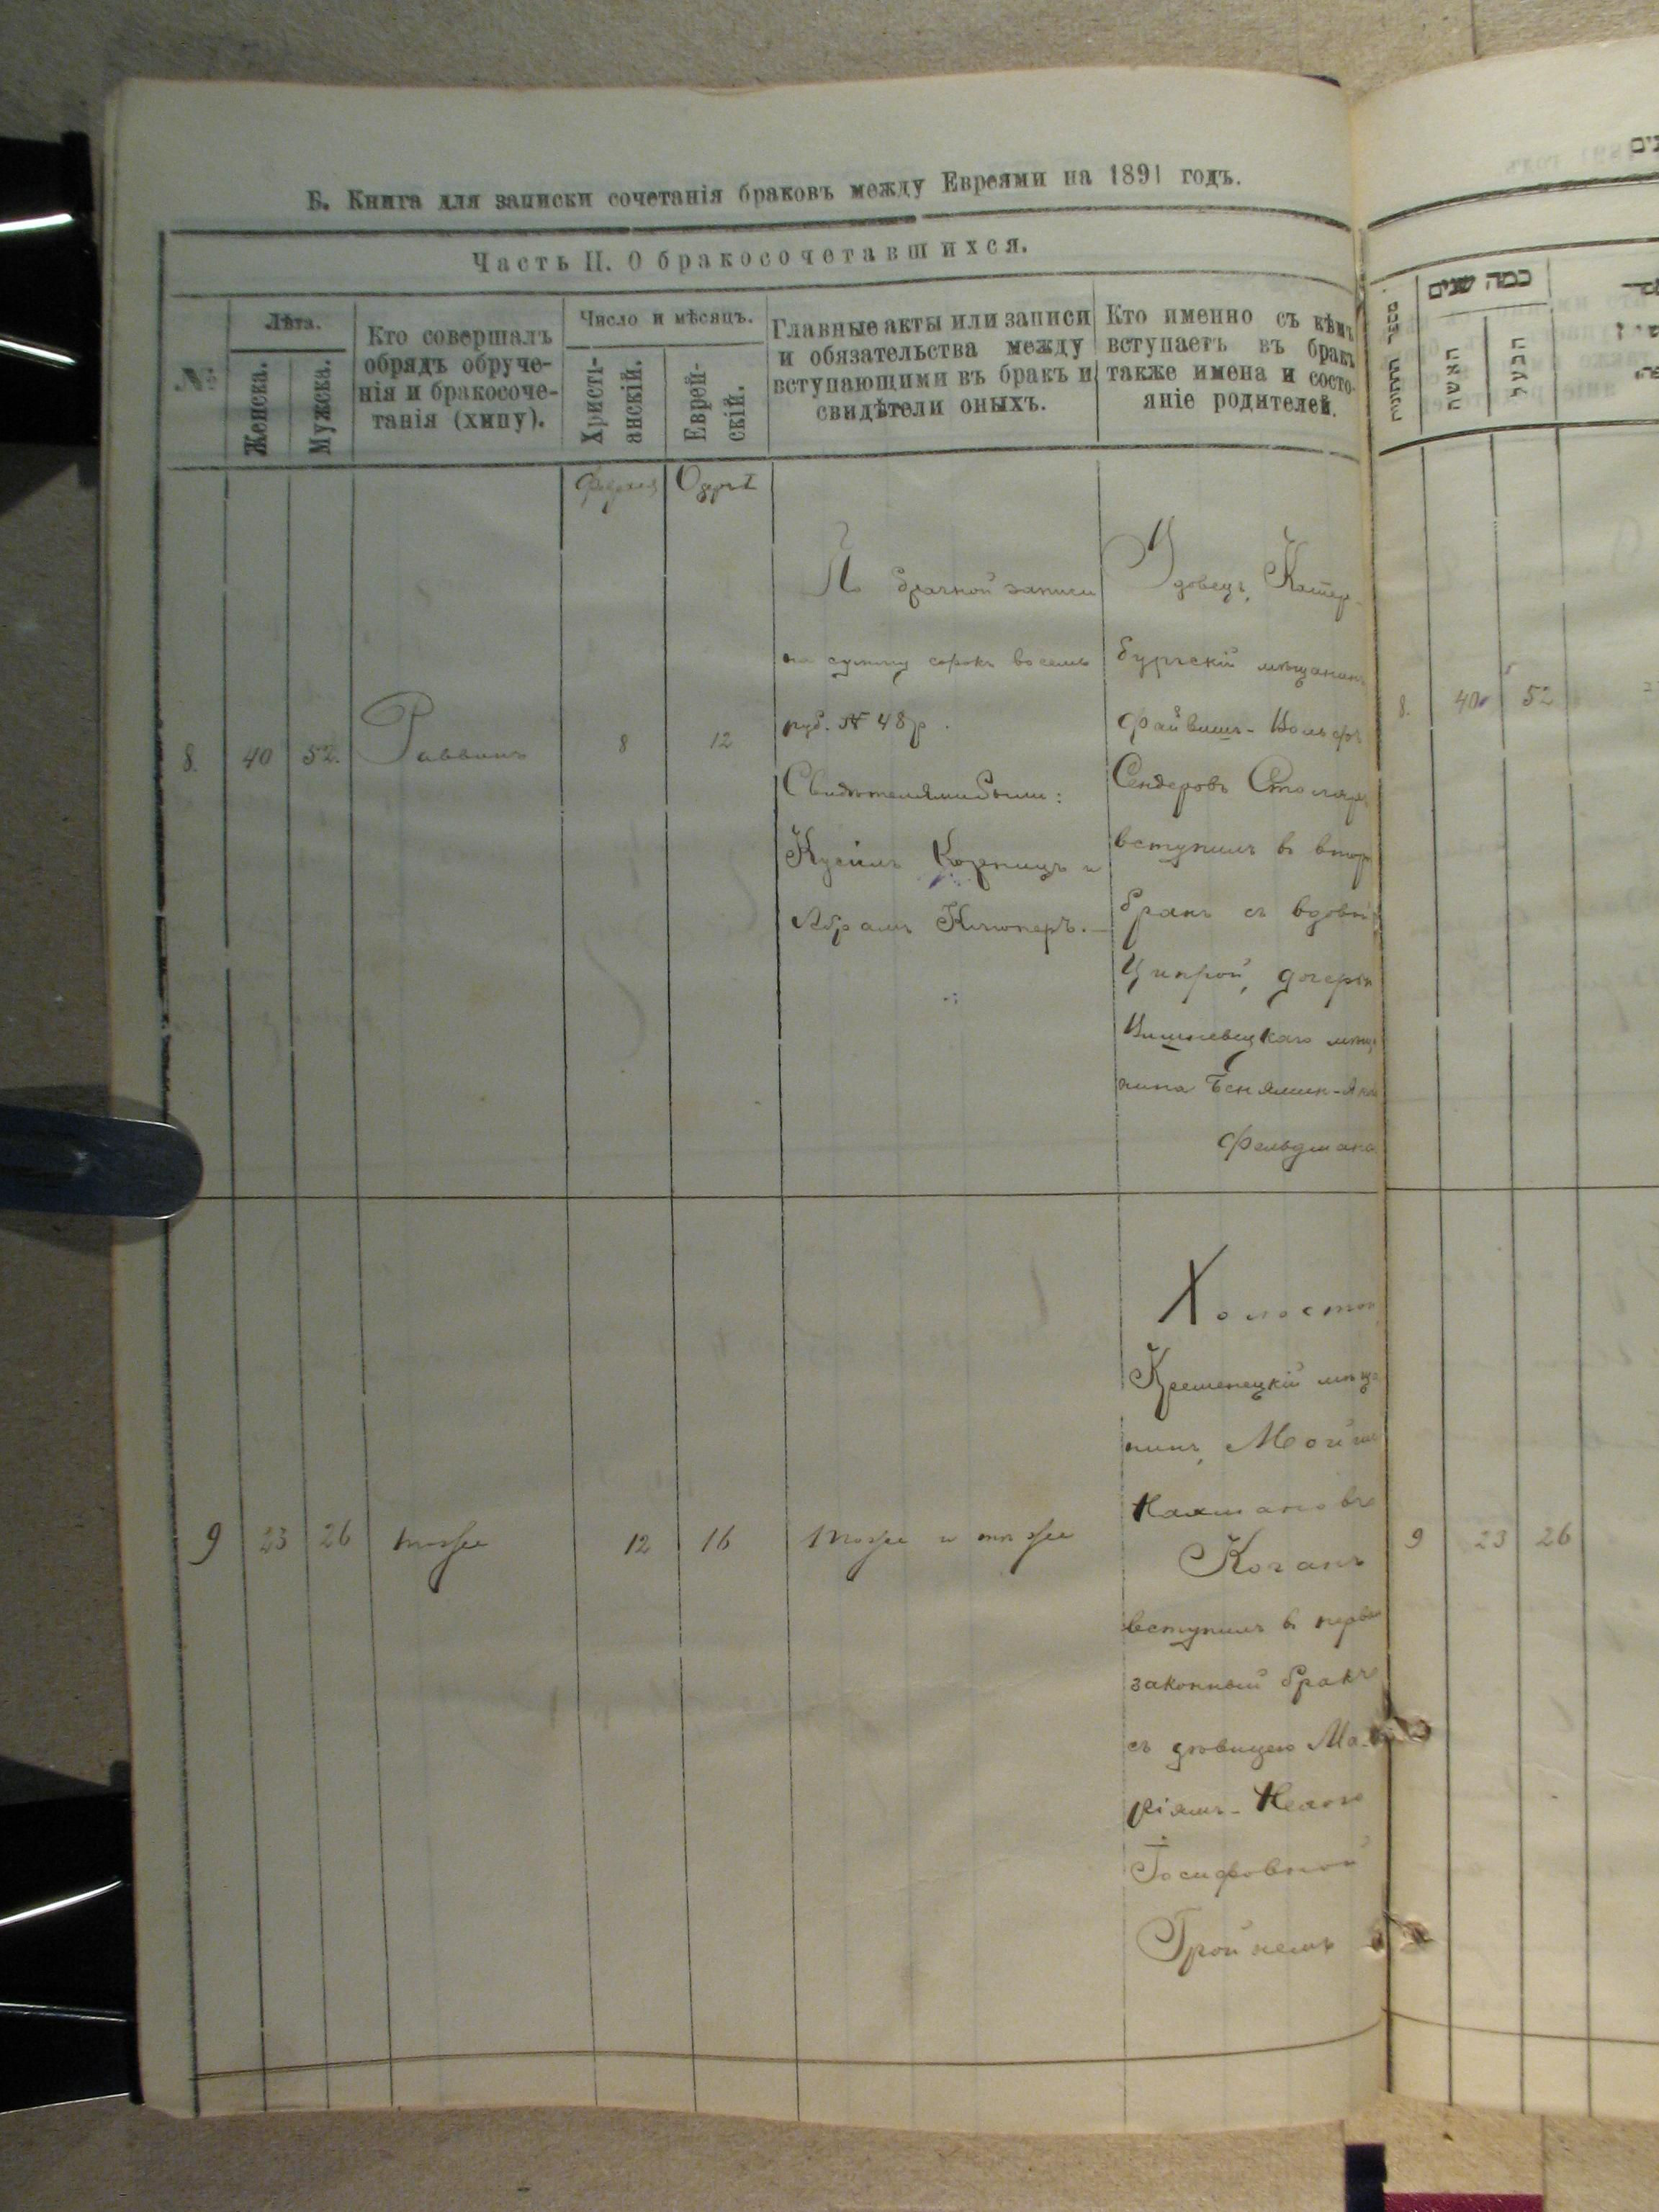 Б. Книга для записки сочетанія браковъ между Евреями на 1891 годъ.
Часть II. О бракосочетавшихся.
№
Лѣта.
Женска.
Мужска.
Кто совершалъ
обрядъ обруче-
нія и бракосоче-
танія (хипу).
Число и мѣсяцъ.
Христі-
анскій.
Еврей-
скій.
Главные акты или записи
и обязательства между
вступающими въ бракъ и
свидѣтели оныхъ.
Кто именно съ кѣмъ
вступаетъ въ бракъ
также имена и состо-
яніе родителей.
מספר החתונות
כמה שנים
האשה
הבעל
Февраля
Одеръ I
8.
40
52.
Раввинъ
8
12
По брачной записи
на сумму сорокъ восемь
руб. № 48 р.
Свидѣтелями были:
Кусиль Корницъ и
Абрамъ Клюперъ.—
Удовецъ, Катер-
бургскій мѣщанинъ
Файвишъ-Вольфъ
Сендеровъ Столяръ
вступилъ в втор
бракъ съ вдов
Ципрой, дочерью
Вишневецкаго мѣща
нина Бенямин-
Фельдмана
8.
40
52
9
23
26
тоже
12
16
тоже и тѣ же
Холостой
Кременецкій мѣща
нинъ, Мой
Нахмановъ
Коганъ
вступилъ в первы
законный бракъ
съ дѣвицею Ма-
ріямъ-Нехою
Іосифовной
Тройнемъ
9
23
26